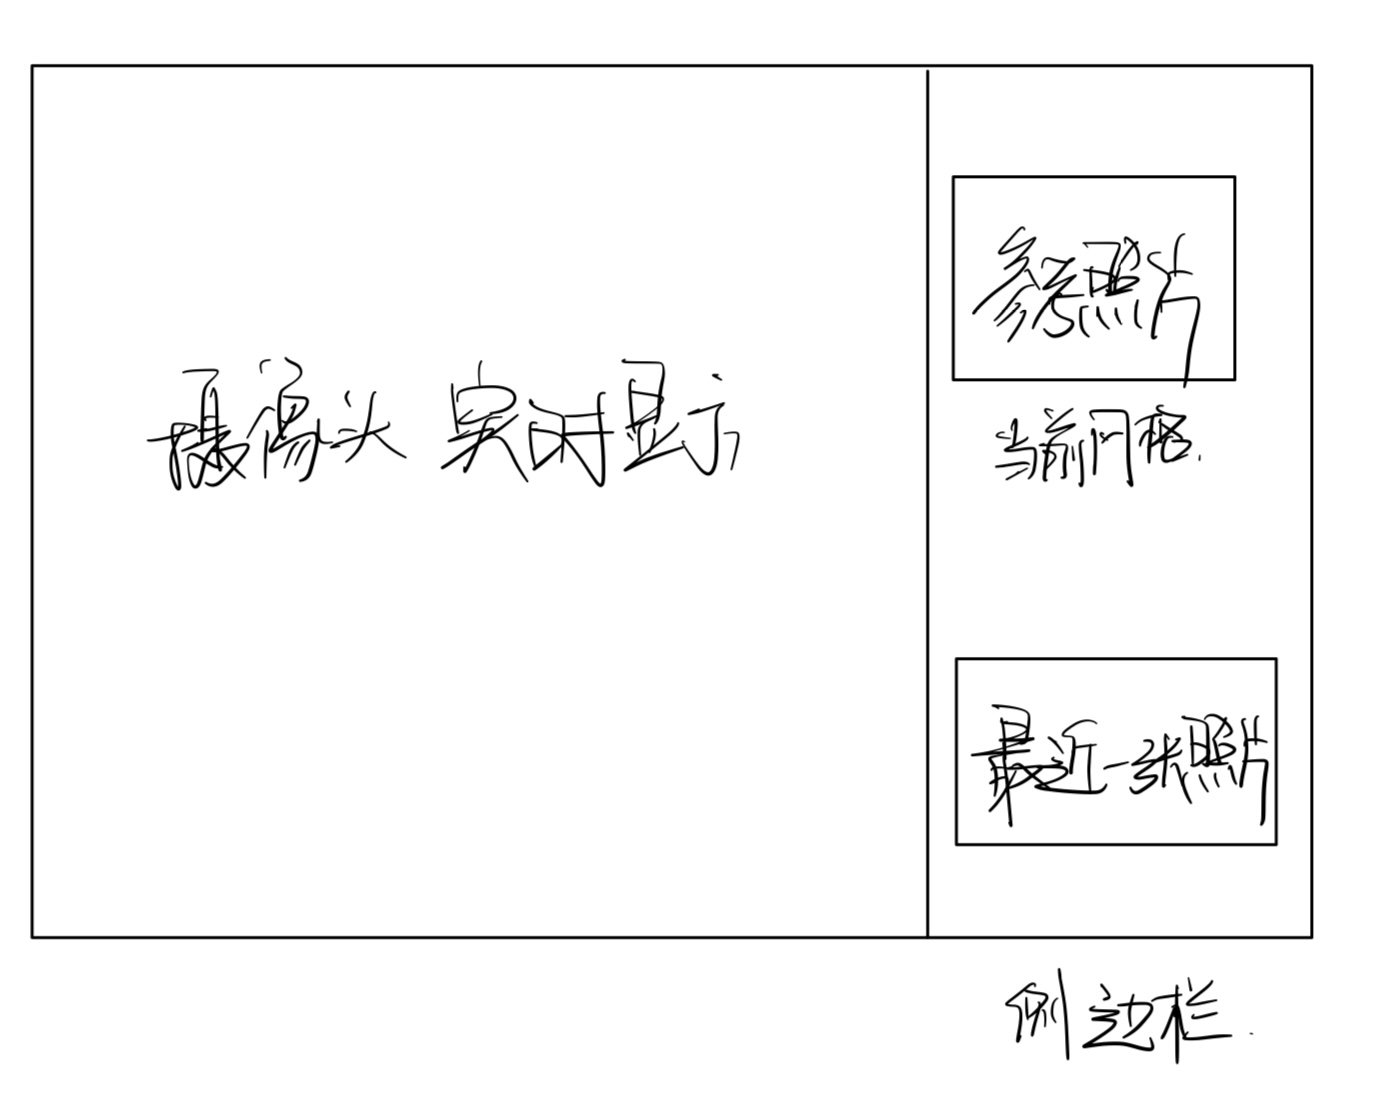 摄像头 实时显示
参考照片
当前风格
最近一张照片
侧边栏